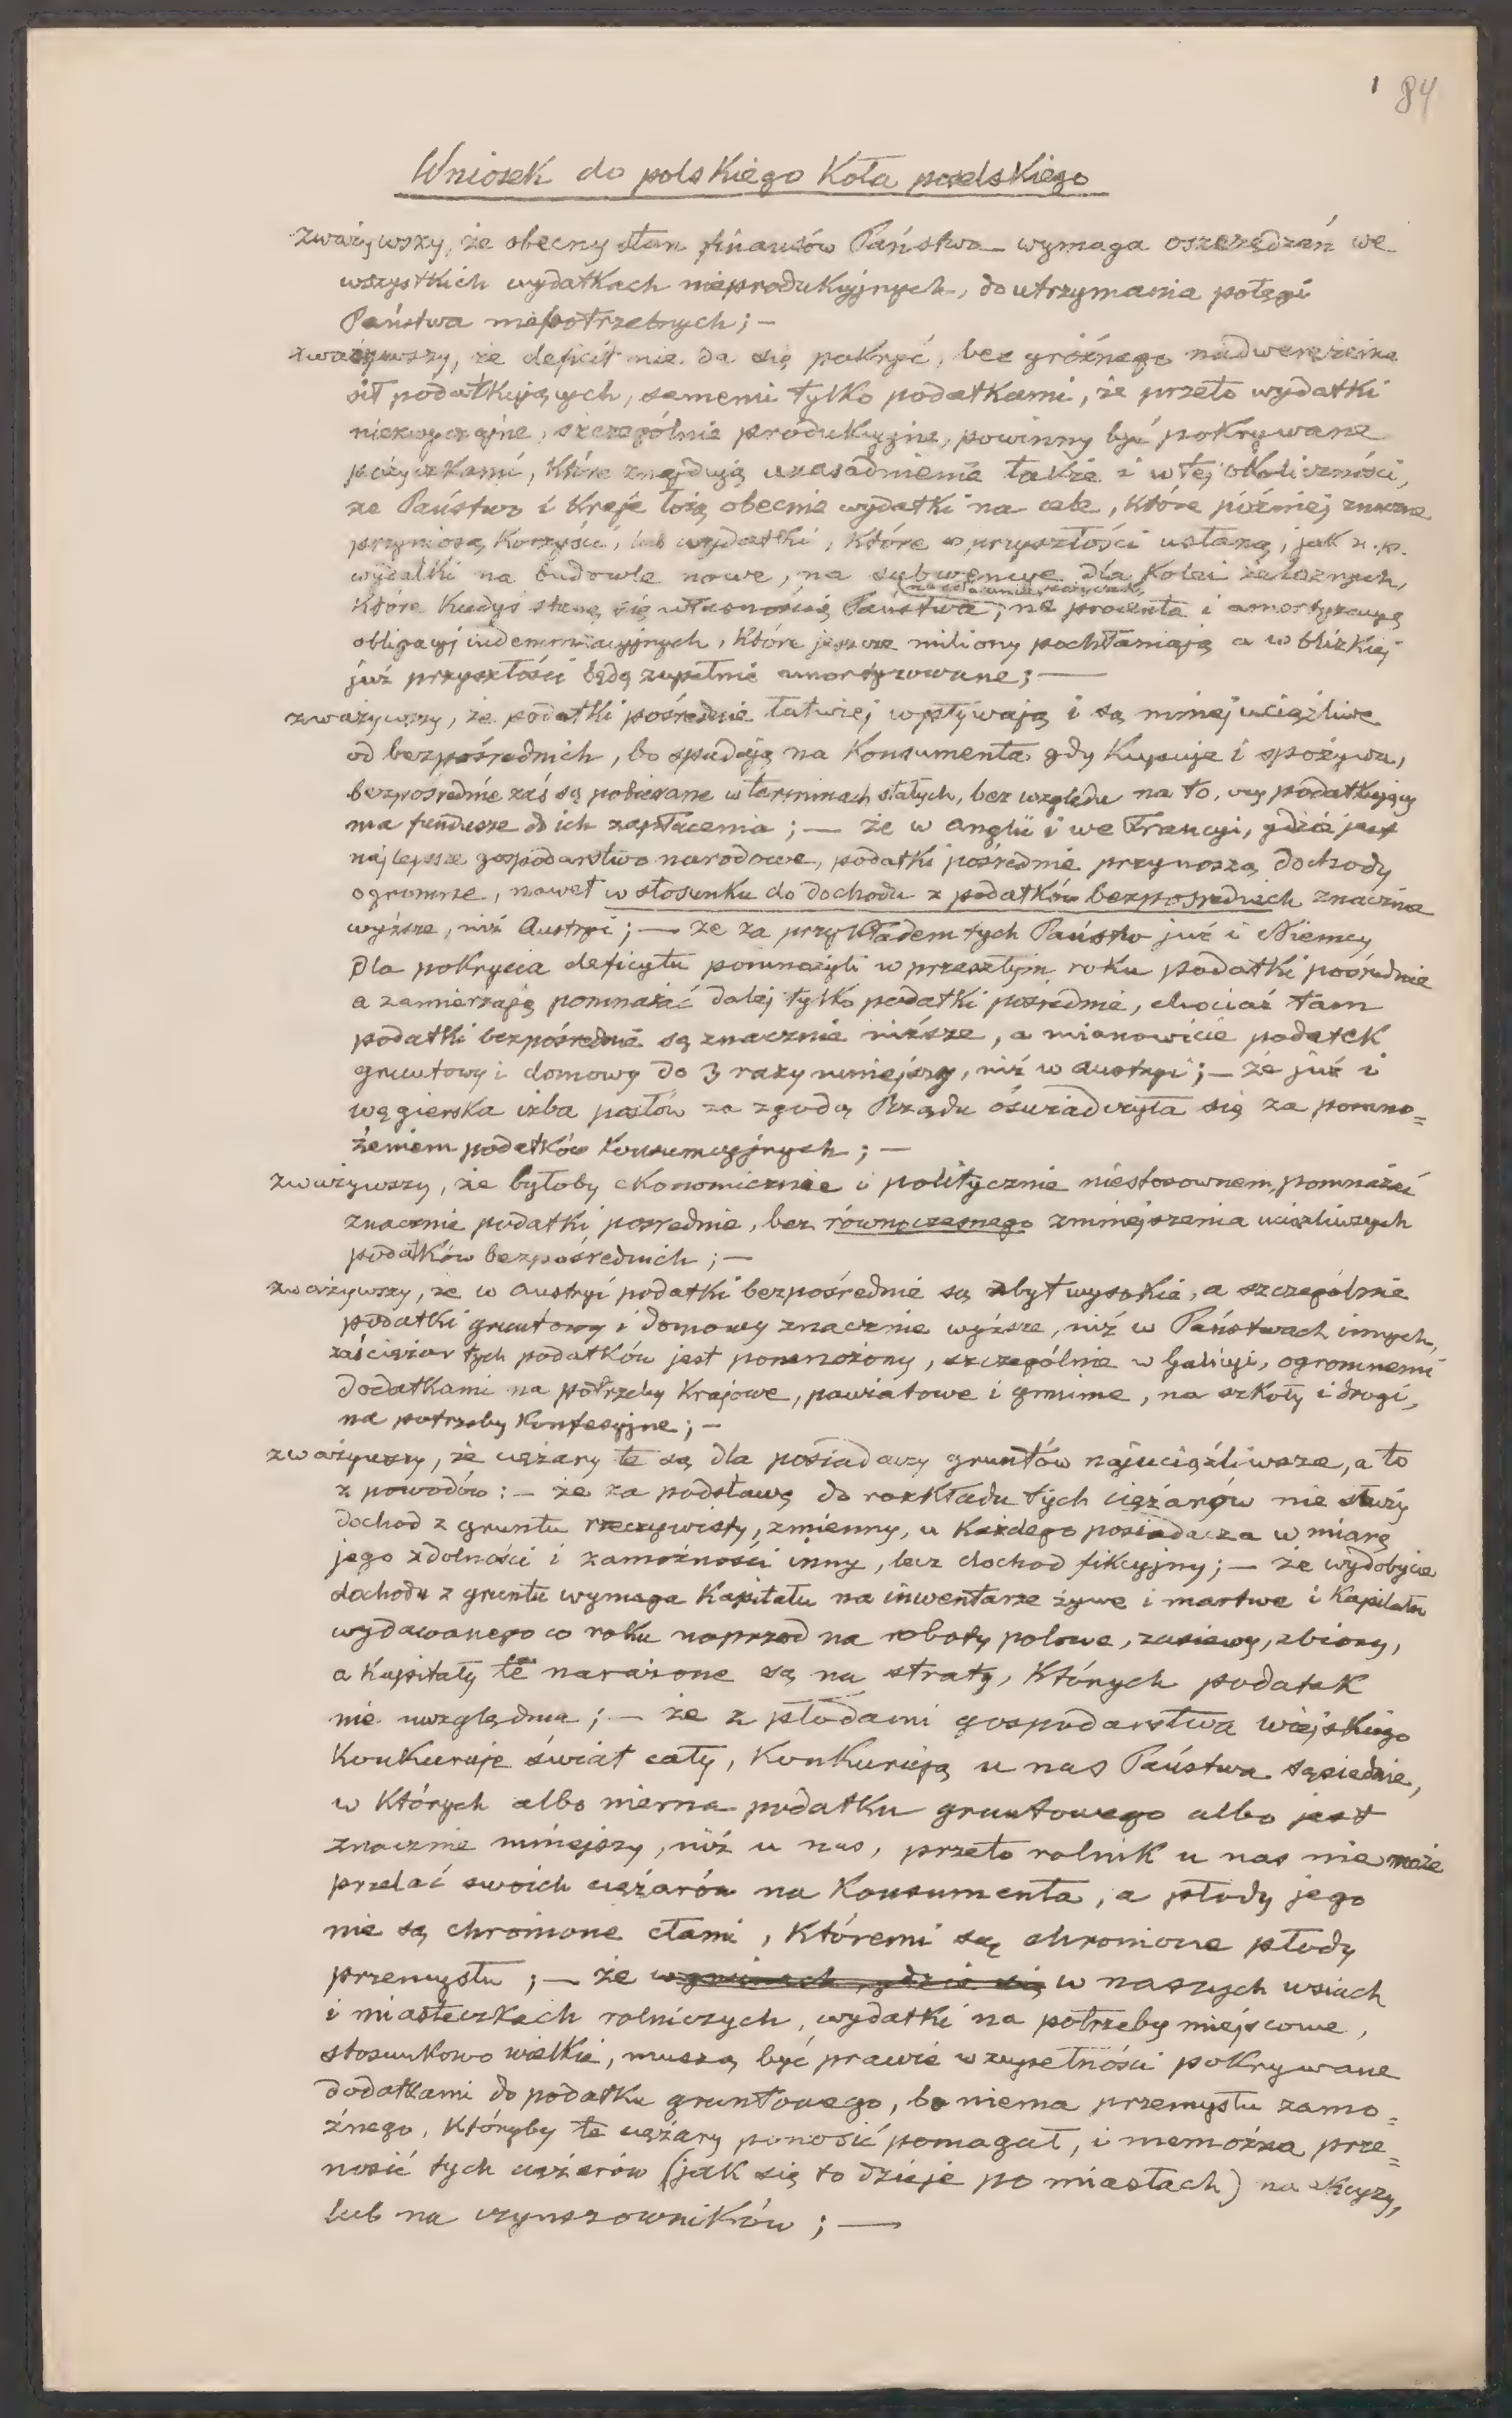 84
Wniosek do polskiego Koła poselskiego
zważywszy, że obecny stan finansów Państwa wymaga oszczędzań we
wszystkich wydatkach nieprodukcyjnych, do utrzymania potęgi
Państwa niepotrzebnych; –
zważywszy, że deficit nie da się pokryć, bez groźnego nadwerężenia
sił podatkujących, samemi tylko podatkami, że przeto wydatki
niezwyczajne, szczególnie produkcyjne, powinny być pokrywane
pożyczkami, które znajdują uzasadnienie także i w tej okoliczności,
że Państwo i Kraje łożą obecnie wydatki na cele, które później znaczne
przyniosą korzyści, lub wydatki, które w przyszłości ustaną, jak n. p.
wydatki na budowle nowe, na subwencye dla Kolei żelaznych,
które kiedyś staną się własnością Państwa, na procenta i amortyzacyę
obligacyj indemnizacyjnych, które jeszcze miliony pochłaniają a w blizkiej
już przyszłości będą zupełnie umorzyzowane; —
zważywszy, że podatki pośrednie łatwiej wpływają i są mniej uciążliwe
od bezpośrednich, bo spadają na Konsumenta gdy kupuje i spożywa,
bezpośrednie zaś są pobierane w terminach stałych, bez względu na to, czy podatkujący
ma fundusze do ich zapłacenia; — że w Anglii i we Francyi, gdzie jest
najlepsze gospodarstwo narodowe, podatki pośrednie przynoszą dochody
ogromne, nawet w stosunku do dochodu z podatków bezpośrednich znacznie
wyższe, niż Austryi; — że za przykładem tych Państw już i Niemcy
dla pokrycia deficytu pomnożyli w przeszłym roku podatki pośrednie
a zamierzają pomnażać dalej tylko podatki pośrednie, chociaż tam
podatki bezpośrednie są znacznie niższe, a mianowicie podatek
gruntowy i domowy do 3 razy mniejszy, niż w Austryi; – że już i
węgierska izba posłów za zgodą Rządu oświadczyła się za pomno=
żeniem podatków konsumcyjnych; –
zważywszy, że byłoby ekonomicznie i politycznie niestosownem, pomnażać
znacznie podatki pośrednie, bez równoczesnego zmniejszenia uciążliwych
podatków bezpośrednich; –
zważywszy, że w Austryi podatki bezpośrednie są zbyt wysokie, a szczególnie
podatki gruntowy i domowy znacznie wyższe, niż w Państwach innych,
zaś ciężar tych podatków jest pomnożony, szczególnie w Galicyi, ogromnemi
dodatkami na potrzeby Krajowe, powiatowe i gminne, na szkoły i drogi,
na potrzeby Konfesyjne; –
zważywszy, że ciężary te są dla posiadaczy gruntów najuciążliwsze, a to
z powodów: – że za podstawę do rozkładu tych ciężarów nie służy
dochod z gruntu rzeczywisty, zmienny, u każdego posiadacza w miarę
jego zdolności i zamożności inny, lecz dochod fikcyjny; – że wydobycie
dochodu z gruntu wymaga Kapitału na inwentarze żywe i martwe i Kapitału
wydawanego co roku naprzod na roboty polowe, zasiewy, zbiory,
a Kapitały te narażone są na straty, których podatek
nie uwzględnia; – że z płodami gospodarstwa wiejskiego
Konkuruje świat cały, Konkurują u nas Państwa sąsiednie,
w których albo niema podatku gruntowego albo jest
znacznie mniejszy, niż u nas, przeto rolnik u nas nie może
przelać swoich ciężarów na Konsumenta, a płody jego
nie są chronione cłami, któremi są chronione płody
przemysłu; – że w gminach, gdzie się w naszych wsiach
i miasteczkach rolniczych, wydatki na potrzeby miejscowe,
stosunkowo wielkie, muszą być prawie w zupełności pokrywane
dodatkami do podatku gruntowego, bo niema przemysłu zamo=
żnego, któryby te ciężary ponosić pomagał, i niemożna prze=
nosić tych ciężarów (jak się to dzieje po miastach) na akcyzy,
lub na czynszowników; —